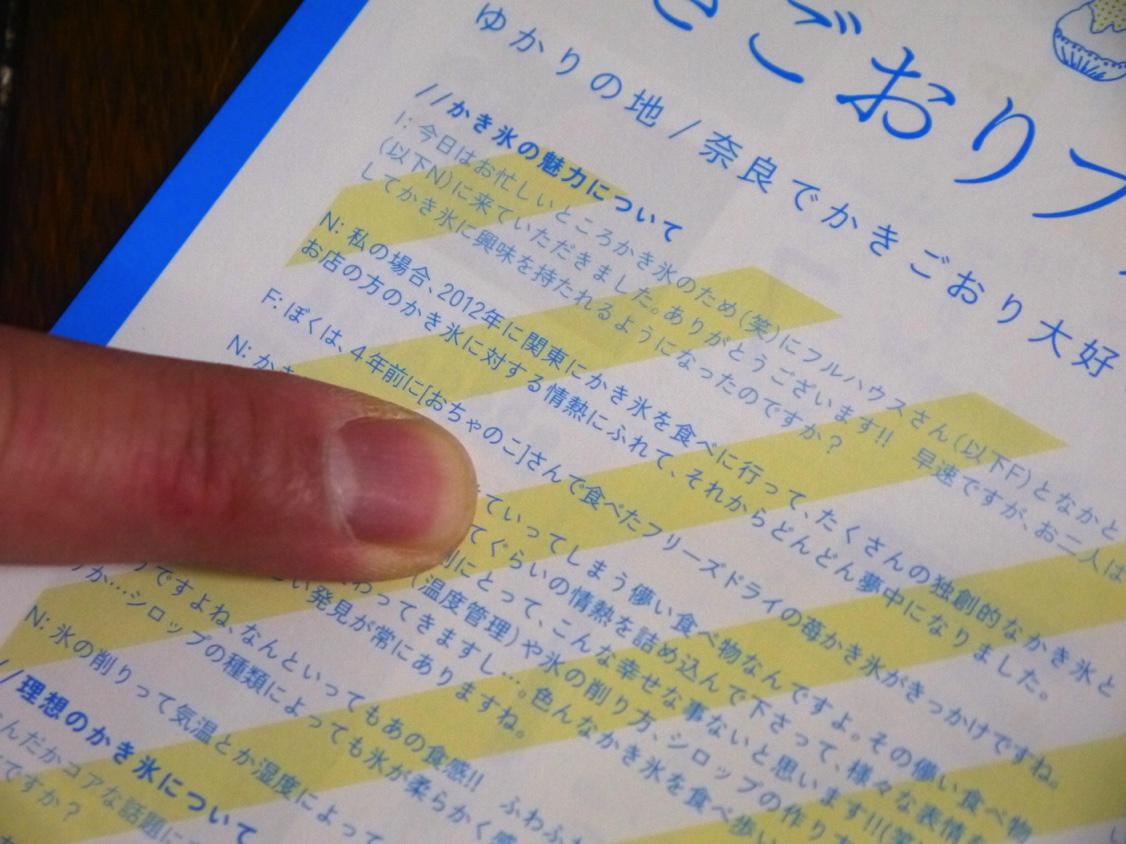 きごおりフ
ゆかりの地/奈良でかきごおり大好
//かき氷の魅力について
I: 今日はお忙しいところかき氷のため(笑)にフルハウスさん(以下F)となかと
(以下N)に来ていただきました。ありがとうございます!! 早速ですが、お二人は
してかき氷に興味を持たれるようになったのですか?
N: 私の場合、2012年に関東にかき氷を食べに行って、たくさんの独創的なかき氷と
お店の方のかき氷に対する情熱にふれて、それからどんどん夢中になりました。
F: ぼくは、4年前に[おちゃのこ]さんで食べたフリーズドライの苺かき氷がきっかけですね。
N: かき
ていってしまう儚い食べ物なんですよ。その儚い食べ物
てぐらいの情熱を詰め込んで下さって、様々な表情を
にとって、こんな幸せな事ないと思います!!(笑
(温度管理)や氷の削り方、シロップの作り方
わってきますし…。色んなかき氷を食べ歩い
い発見が常にありますね。
ですよね、なんといってもあの食感!! ふわふわ
か…シロップの種類によっても氷が柔らかく感
N: 氷の削りって気温とか湿度によって
//理想のかき氷について
んだかコアな話題に
ですか?